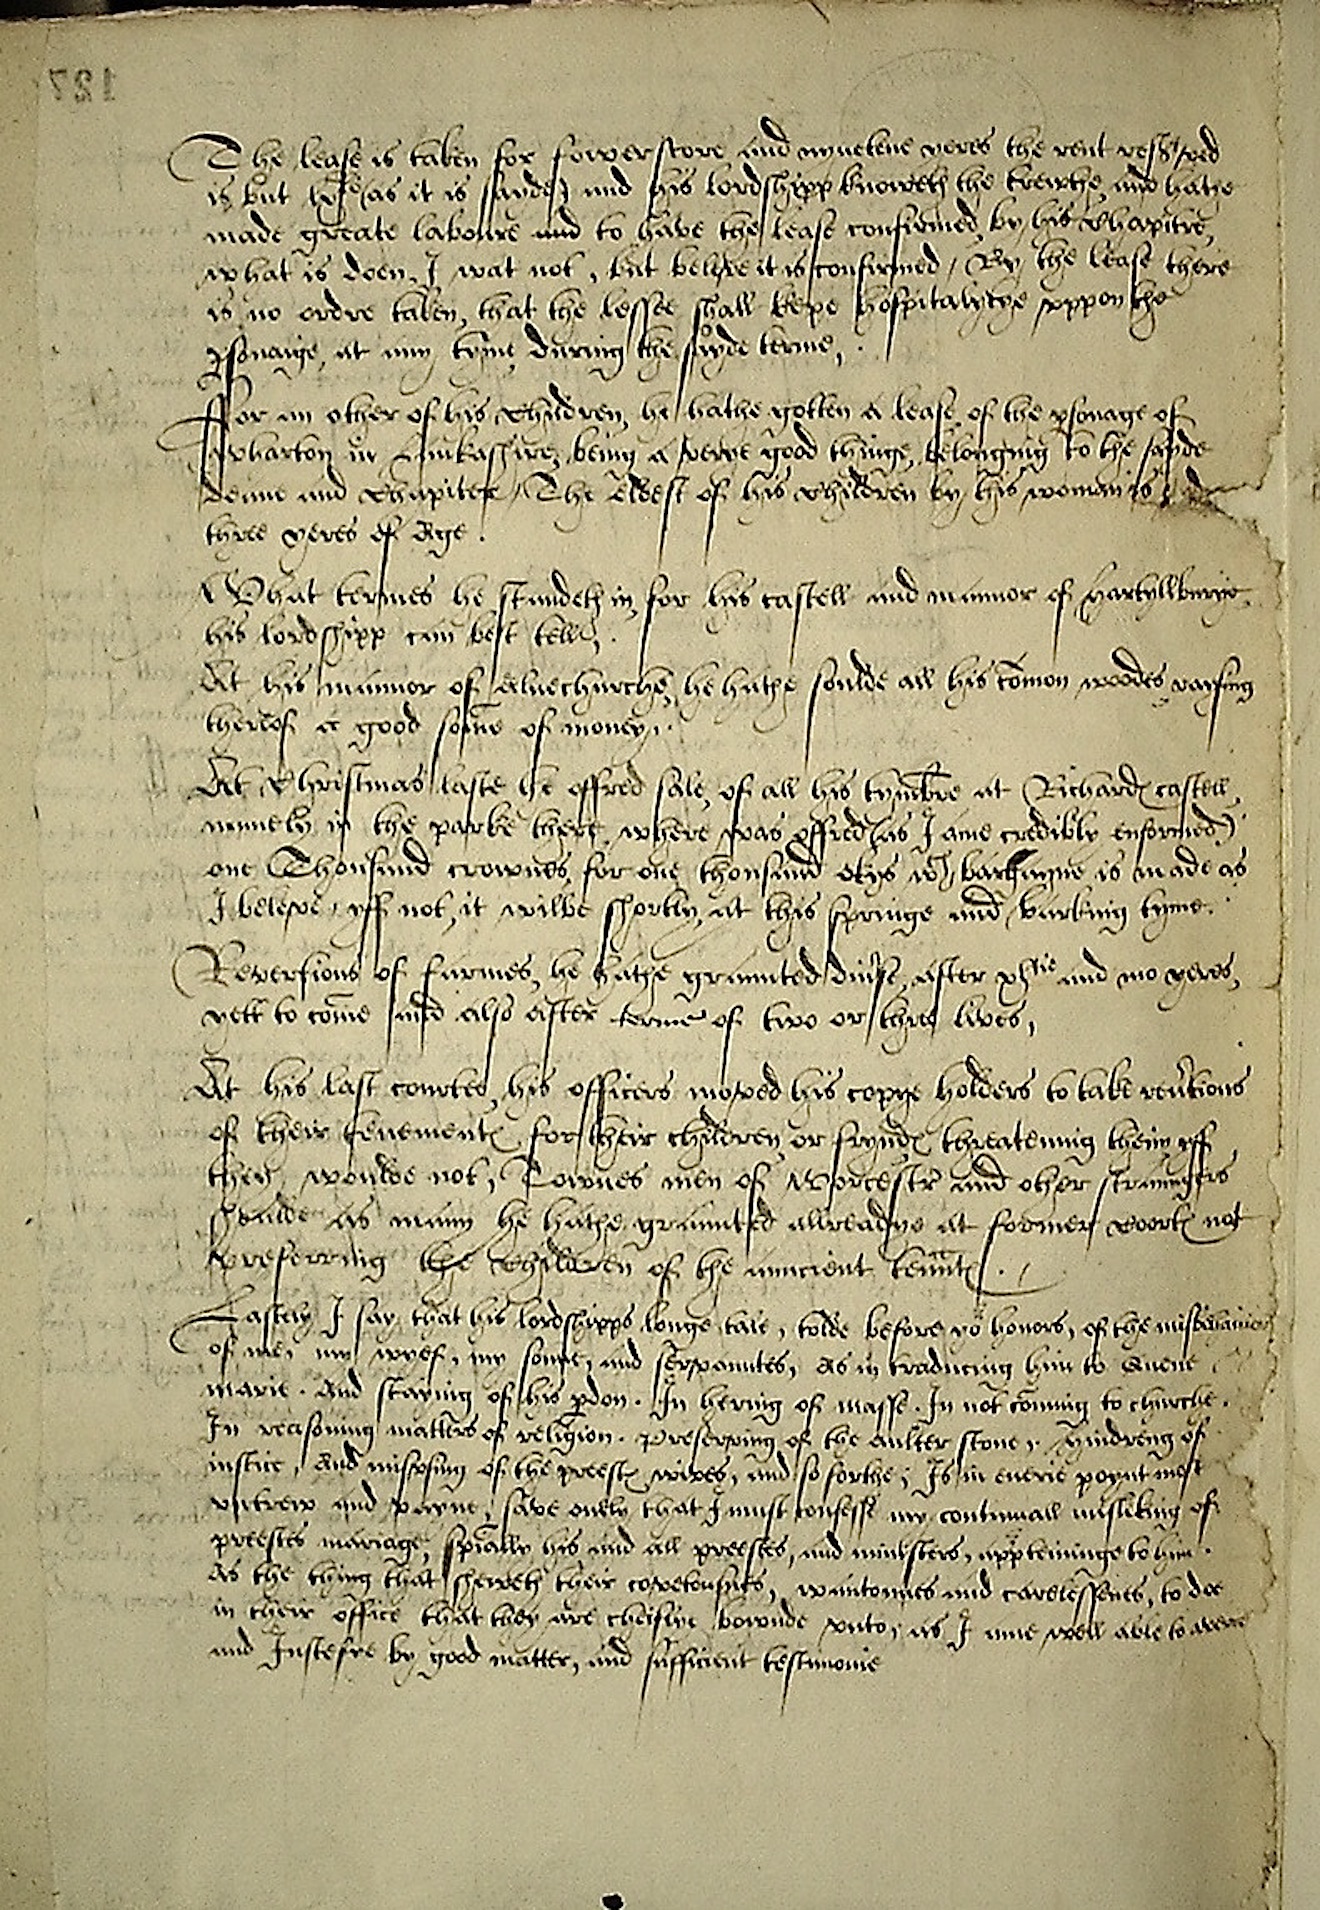 The lease is taken for fower score and nynetene yeres the rent resṽed
is but (as it is sayde) and his lordshipp knoweth the trewthe and hathe
made greate laboure and to have the lease confirmed, by his Chapitre,
what is doen, I wat not, but beleve it is confirmed / By the lease there
is no ordre taken, that the lessee shall kepe hospitalytye vppon the
psonaige, at any tyme, during the sayde terme,
For an other of his Children, he hathe gotten a lease, of the psonage of
Wharton in Lankashire, being a verye good thinge, belonging to the sayde
deane and Chapiter / The eldest of his Children by his woman is
three yeres of Age .
What termes he standeth in, for his castell and mannor of Hartyllburye
his lordshipp can best tell, .
At his mannor of Aluechurche, he hathe soulde all his com̃on woodes raysing
thereof a good som̃e of money, .
At Christmas laste he offred sale, of all his tymbre at Richard castell,
namely in the parke there, where was offred (as I ame credibly enformed)
one Thousand crownes, for one thousand okys wch bargayne is made as
I beleve, yff not, it wilbe shortly, at this springe and barking tyme.
Reversions of farmes, he hathe graunted , after xltie and mo yeres,
yett to com̃e and also after terme of two or three lives,
At his last courtes, his officers moved his copye holders to take reṽtions
of their tenement for their children, or frynd threatening theim, yff
they woulde not, Townes men of Worcestr̃ and other straungers
shoulde as many he hathe graunted allreadye at former Coort not
preferring the Children of the auncient tennt . /
Lastely I say that his lordshipps longe tale, tolde before yor honors, of the
of me, my wyef, my sonne, and servanntes, As in traducing him to Quene
marie . And staying of his pdon . In hering of masse . In not com̃ing to churche .
In reasoning matters of religion . Preserving of the aulter stone, Hindreng of
iustice, And misvsing of the preest wives, and so forthe; Is in euerie poynt most
vntrew and vayne, save onely that I must confesse my continuall misliking of
preestes mariage, spially his and all preestes, and ministers, appteininge to him .
As the thing that sheweth their covetousnes, wantonnes and carelessenes, to doe
in their office that they are cheiflye bownde vnto, as I ame well able to
and Iustefye by good matter, and sufficient testimonie